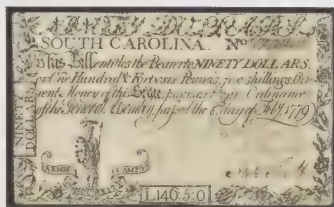 SOUTH CAROLINA. No
This Bill entitles the Bearer to NINETY DOLLARS,
or One Hundred & Forty six Pounds, five shillings, Cur
rent Money of this State, pursuant to an Ordinance
of the General Assembly, passed the 8 day of Feby. 1779
NINETY
DOLLARS
ARMIS
L146.5.0